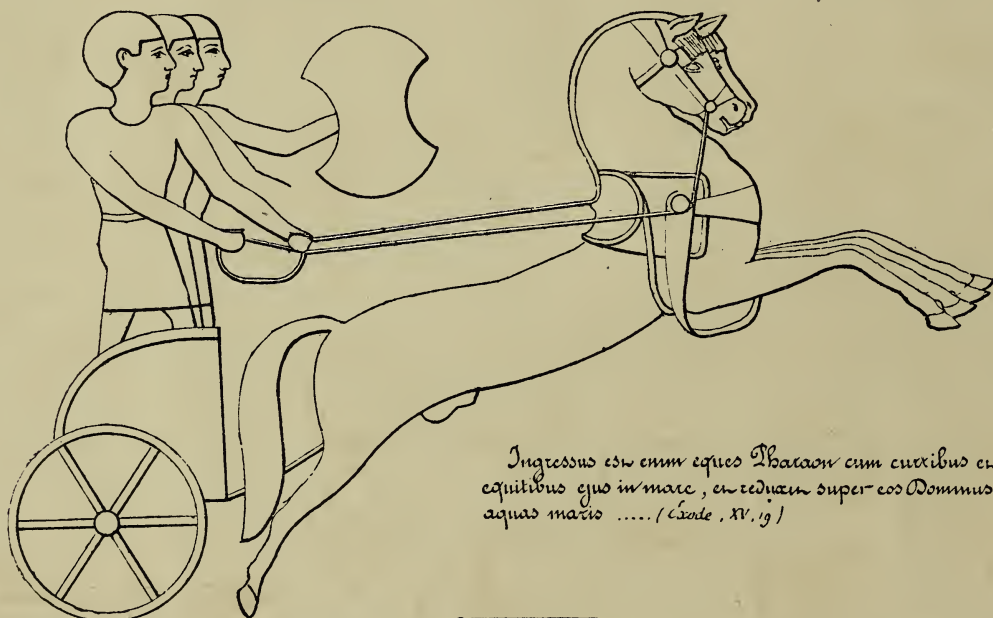 Ingressus est enim eques Pharaon cum curribus et
equitibus ejus in mare, et reduxit super eos Dominus
aquas maris ..... (Exode, XV, 19)